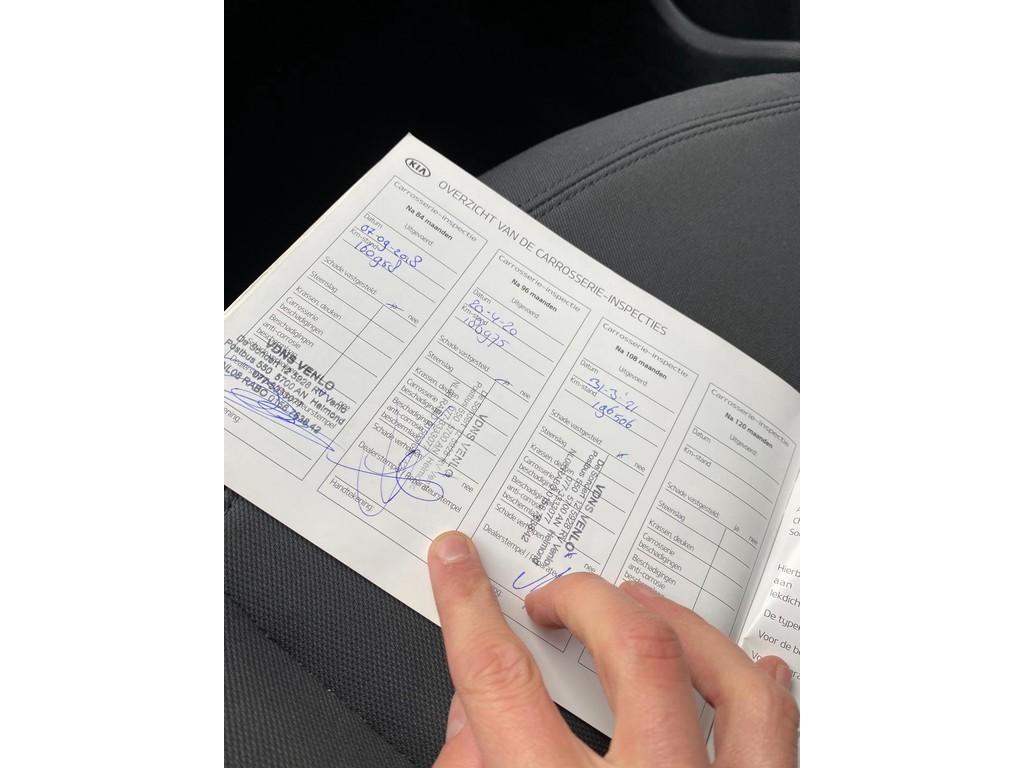 KIA
OVERZICHT VAN DE CARROSSERIE-INSPECTIES
Carrosserie-inspectie
Na 84 maanden
Uitgevoerd:
Datum
07-09-2018
Km-stand
160958
Schade vastgesteld:
ja
nee
Steenslag
Krassen, deuken
Carrosserie
beschadigingen
Beschadigingen
anti-corrosie
VDNS VENLO
De Sondert 12 5928 RV Venlo
Postbus 550 5700 AN Helmond
Carrosserie-inspectie
Na 96 maanden
Uitgevoerd:
Datum
20-4-20
Km-stand
180975
Schade vastgesteld:
nee
Steenslag
Krassen, deuken
Carrosserie
beschadigingen
Beschadigingen
anti-corrosie
Schade verholpen
nee
Dealerstempel / Reparateurstempel
Handtekening:
VDNS VENLO
De Sondert 12 5928 RV Venlo
Postbus 550 5700 AN Helmond
Carrosserie-inspectie
Na 108 maanden
Uitgevoerd:
Datum
31-3-'21
Km-stand
196506
Schade vastgesteld:
nee
Steenslag
Krassen, deuken
Carrosserie
beschadigingen
Beschadigingen
anti-corrosie
Schade verholpen
nee
Dealerstempel / Reparateurstempel
VDNS VENLO
De Sondert 12 5928 RV Venlo
Postbus 550 5700 AN Helmond
Carrosserie-inspectie
Na 120 maanden
Uitgevoerd:
Datum
Km-stand
Schade vastgesteld:
ja
nee
Steenslag
Krassen, deuken
Carrosserie
beschadigingen
Beschadigingen
anti-corrosie
Hierb
aan
lekdich
De typen
Voor de be